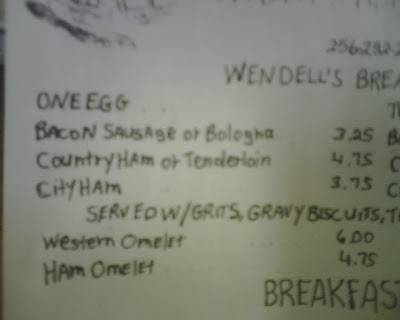 256-292-
WENDELL'S BREA
ONE EGG
BACON SAUSAGE or Bologna 3.25 B
Country HAM or Tenderloin 4.75 C
City HAM 3.75 C
SERVED W/GRITS, GRAVY BISCUITS, T
Western Omelet 6.00
HAM Omelet 4.75
BREAKFAST